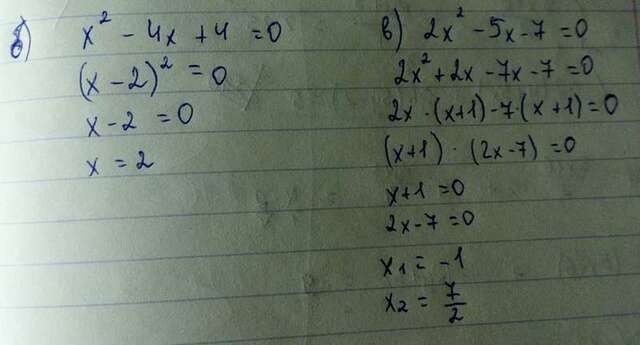 б) x² - 4x + 4 = 0
(x - 2)² = 0
x - 2 = 0
x = 2
в) 2x² - 5x - 7 = 0
2x² + 2x - 7x - 7 = 0
2x · (x+1) - 7 · (x+1) = 0
(x+1) · (2x-7) = 0
x+1 = 0
2x-7 = 0
x₁ = -1
x₂ = 7/2